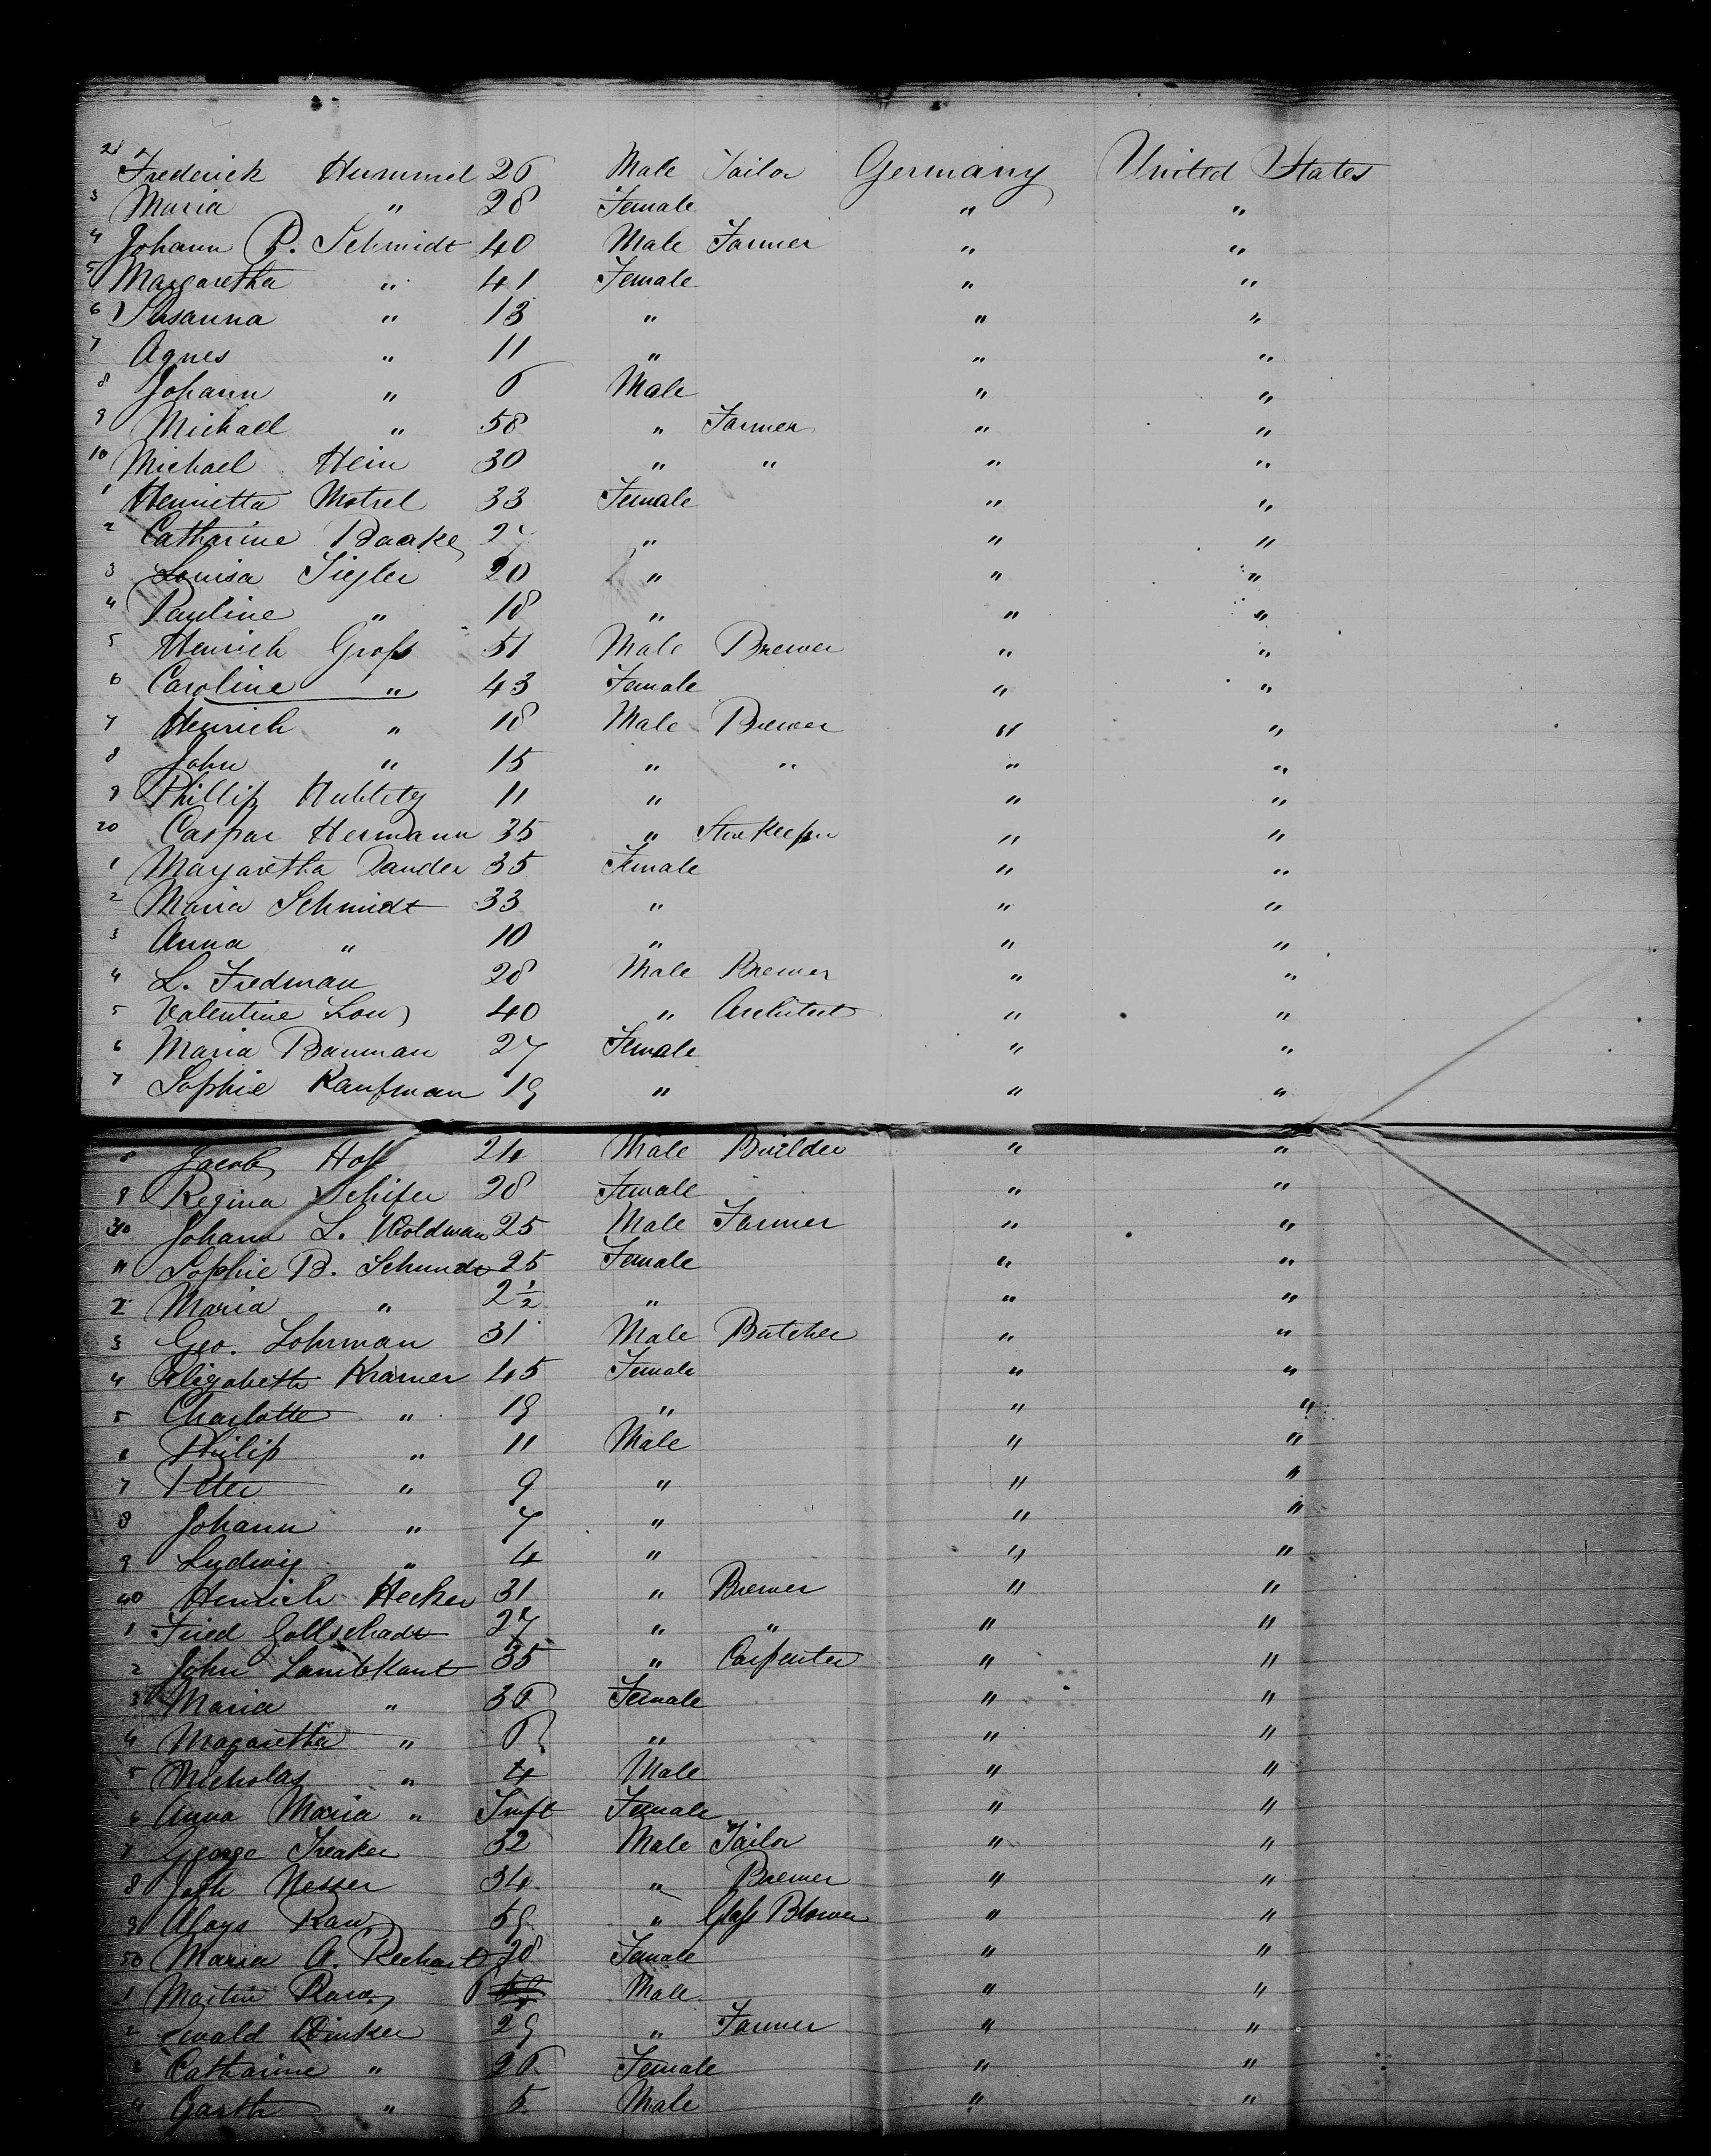 2 Frederich Hummel 26 Male Tailor Germany United States
3 Maria " 28 Female " "
4 Johann P. Schmidt 40 Male Farmer " "
5 Margaretha " 41 Female " "
6 Susanna " 13 " " "
7 Agnes " 11 " " "
8 Johann " 6 Male " "
9 Michael " 58 " Farmer " "
10 Michael Hein 30 " " " "
1 Henrietta Motzel 33 Female " "
2 Catharine Baake 27 " " "
3 Louisa Siegler 20 " " "
4 Pauline " 18 " " "
5 Henrich Groß 51 Male Brewer " "
6 Caroline " 43 Female " "
7 Henrich " 18 Male Brewer " "
8 John " 15 " " " "
9 Phillip 11 " " "
20 Caspar Hermann 35 " Storekeeper " "
1 Margaretha Dauder 35 Female " "
2 Maria Schmidt 33 " " "
3 Anna " 10 " " "
4 L. Fredman 28 Male Brewer " "
5 Valentine Low 40 " Architect " "
6 Maria Bauman 27 Female " "
7 Sophie Kaufman 19 " " "
8 Jacob Hoff 24 Male Builder " "
9 Regina Schifer 28 Female " "
30 Johann L. Woldman 25 Male Farmer " "
" Sophie B. Schmidt 25 Female " "
2 Maria " 2½ " " "
3 Geo. Lohrman 31 Male Butcher " "
4 Elizabeth Kramer 45 Female " "
5 Charlotte " 19 " " "
6 Philip " 11 Male " "
7 Peter " 9 " " "
8 Johann " 7 " " "
9 Ludwig " 4 " " "
40 Henrich Hecker 31 " Brewer " "
1 Fried Gottschadt 27 " " " "
2 John Lambkant 35 " Carpenter " "
3 Maria " 36 Female " "
4 Magaretha " 6 " " "
5 Nicholas " 4 Male " "
6 Anna Maria " Inft Female " "
7 George Treaker 32 Male Tailor " "
8 Josh Nesser 34 " Brewer " "
9 Aloys Rau 59 " Glaß Blower " "
50 Maria A. Rechart 28 Female " "
1 Martin Rau 6 Male " "
2 Ewald Winker 29 " Farmer " "
3 Catharine " 26 Female " "
4 Garth " 5 Male " "